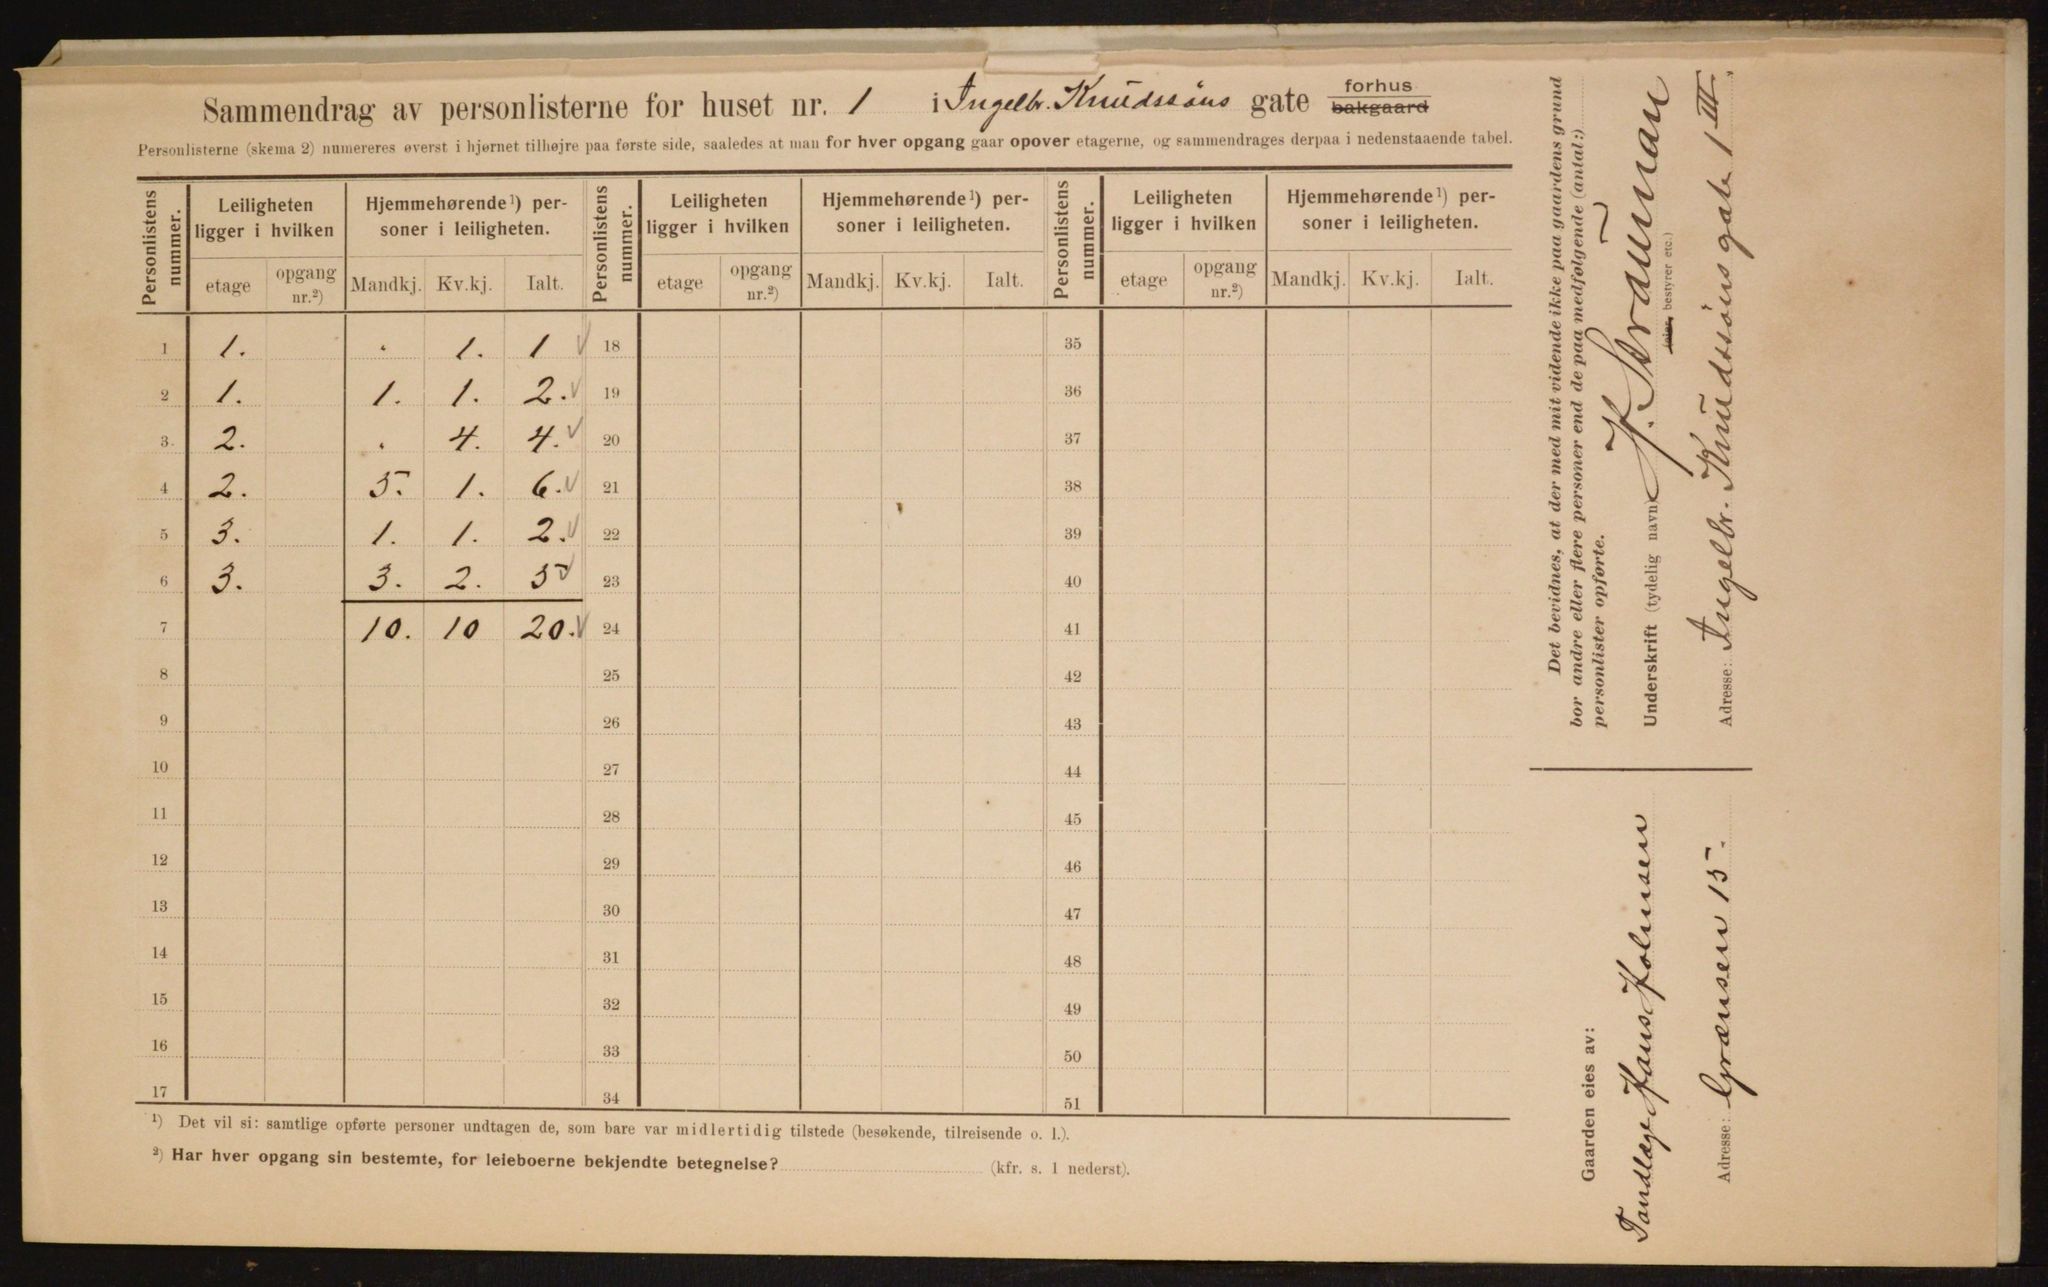 Sammendrag av personlisterne for huset nr. 1 i Ingelbr. Knudssöns gate forhus bakgaard
Personlisterne (skema 2) numereres øverst i hjørnet tilhøjre paa første side, saaledes at man for hver opgang gaar opover etagerne, og sammendrages derpaa i nedenstaaende tabel.
Personlistens nummer. Leiligheten ligger i hvilken Hjemmehørende ¹) personer i leiligheten. Personlistens nummer. Leiligheten ligger i hvilken Hjemmehørende ¹) personer i leiligheten. Personlistens nummer. Leiligheten ligger i hvilken Hjemmehørende ¹) personer i leiligheten.
etage opgang nr.²) Mandkj. Kv.kj. Ialt. etage opgang nr.²) Mandkj. Kv.kj. Ialt. etage opgang nr.²) Mandkj. Kv.kj. Ialt.
1 1. . 1. 1 18 35
2 1. 1. 1. 2. 19 36
3 2. . 4. 4. 20 37
4 2. 5. 1. 6. 21 38
5 3. 1. 1. 2. 22 39
6 3. 3. 2. 5 23 40
7 10. 10 20. 24 41
8 25 42
9 26 43
10 27 44
11 28 45
12 29 46
13 30 47
14 31 48
15 32 49
16 33 50
17 34 51
¹) Det vil si: samtlige opførte personer undtagen de, som bare var midlertidig tilstede (besøkende, tilreisende o. l.).
²) Har hver opgang sin bestemte, for leieboerne bekjendte betegnelse? (kfr. s. 1 nederst).
Det bevidnes, at der med mit vidende ikke paa gaardens grund
bor andre eller flere personer end de paa medfølgende (antal:)
personlister opførte.
Underskrift (tydelig navn)
(eier, bestyrer etc.)
Adresse: Ingelbr. Knudssöns gate 1 III
Gaarden eies av:
Tandlæge Hans Holmsen
Adresse: Grænsen 15.